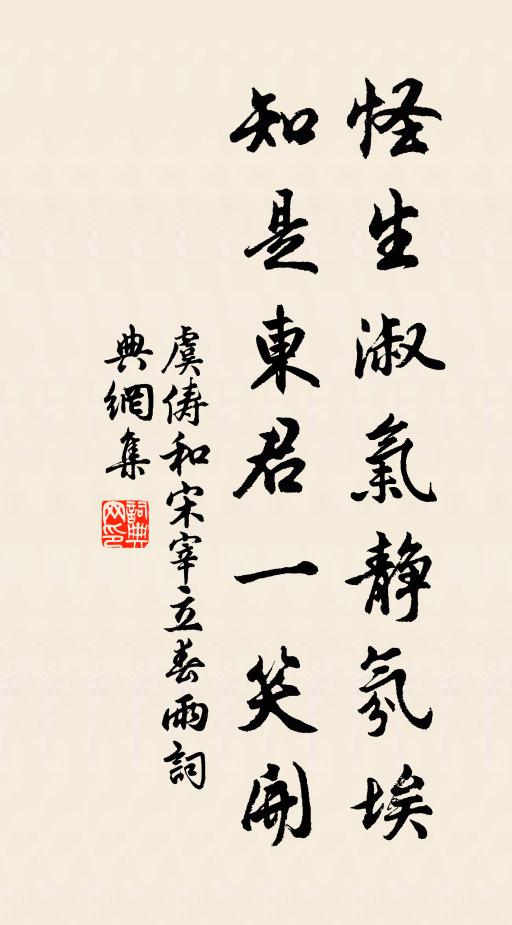 怪生淑氣靜氛埃
知是東君一笑開
虞儔和宋宰立春雨詞
典網集
詞典网印